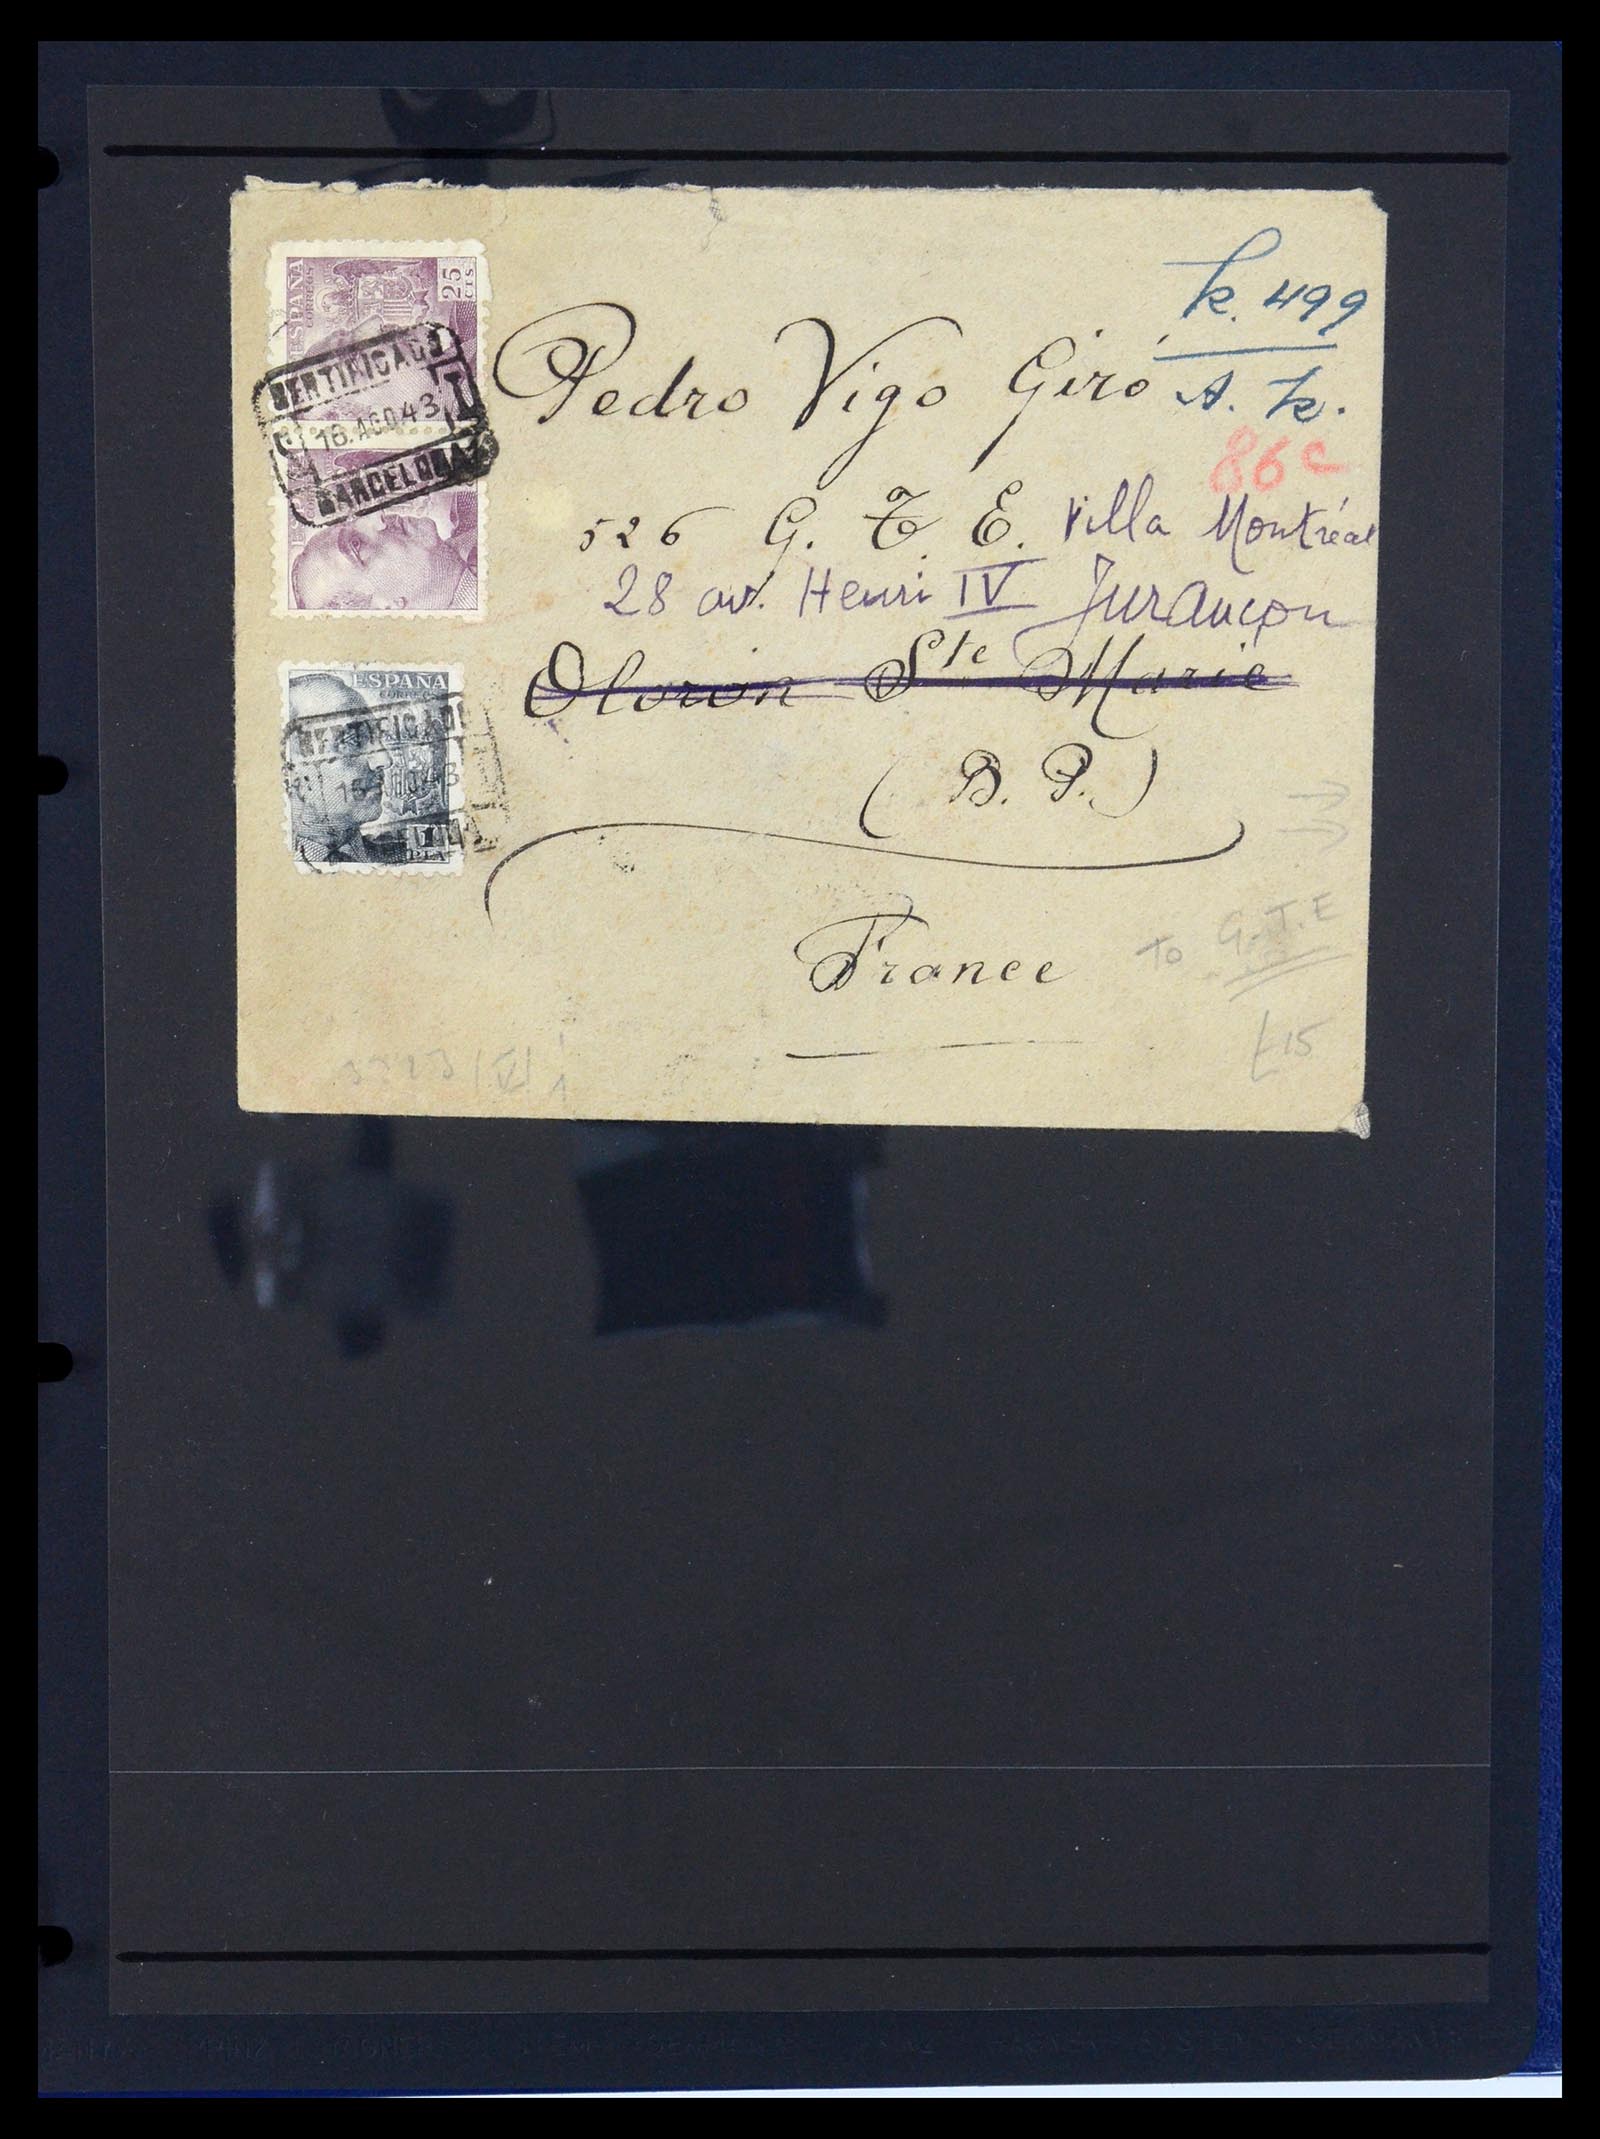 k. 499
A. R.
86 c
Pedro Vigo Giró
526 G. T. E. Villa Montréal
28 av. Henri IV Jurançon
Oloron Ste Marie
(B. P.)
France
To G.T.E
£15
ESPAÑA
CORREOS
25
CTS
CERTIFICADO
16.AGO.43
BARCELONA
ESPAÑA
CORREOS
CERTIFICADO
1
PTA